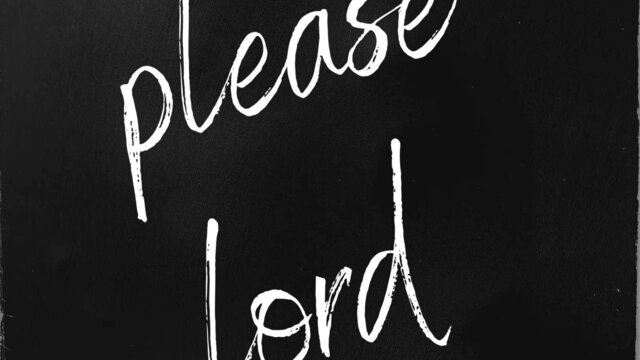 please
lord